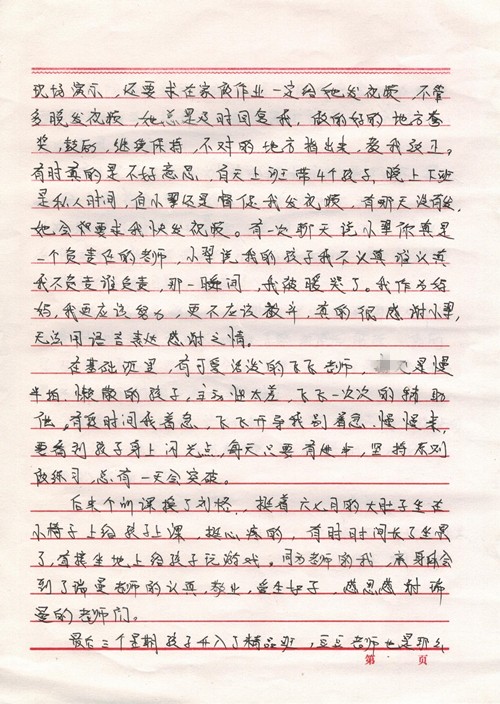 现场演示，还要求在家庭作业一定给她发视频，不管
多晚发视频，她总是及时回复我，做的好的地方夸
奖，鼓励，继续保持，不对的地方指出来，教我改正。
有时真的是不好意思，白天上班带4个孩子，晚上下班
是私人时间，但小翠还是督促我发视频，有那天没有发，
她会都要求我快发视频。有一次聊天说小翠你真是
一个负责任的老师，小翠说我的孩子我不认真谁认真
我不负责谁负责，那一瞬间，我被暖哭了。我作为妈
妈，我更应该努力，更不应该放弃，真的很感谢小翠，
无法用语言表达感谢之情。
在基础班里，有可爱活泼的飞飞老师，是慢
半拍，懒散的孩子，主动性太差，飞飞一次次的辅助
他。有段时间我着急，飞飞开导我别着急，慢慢来，
要看到孩子身上闪光点，每天只要有进步，坚持原则
做练习，总有一天会突破。
后来个训课换了刘悟，挺着六七月的大肚子坐在
小椅子上给孩子上课，挺心疼的，有时时间长了坐累
了，直接坐地上给孩子玩游戏。同为老师的我，亲身体会
到了瑞曼老师的认真，敬业，爱生如子，感恩感谢瑞
曼的老师们。
最后三个星期孩子升入了精品班，豆豆老师也是那么
第 页